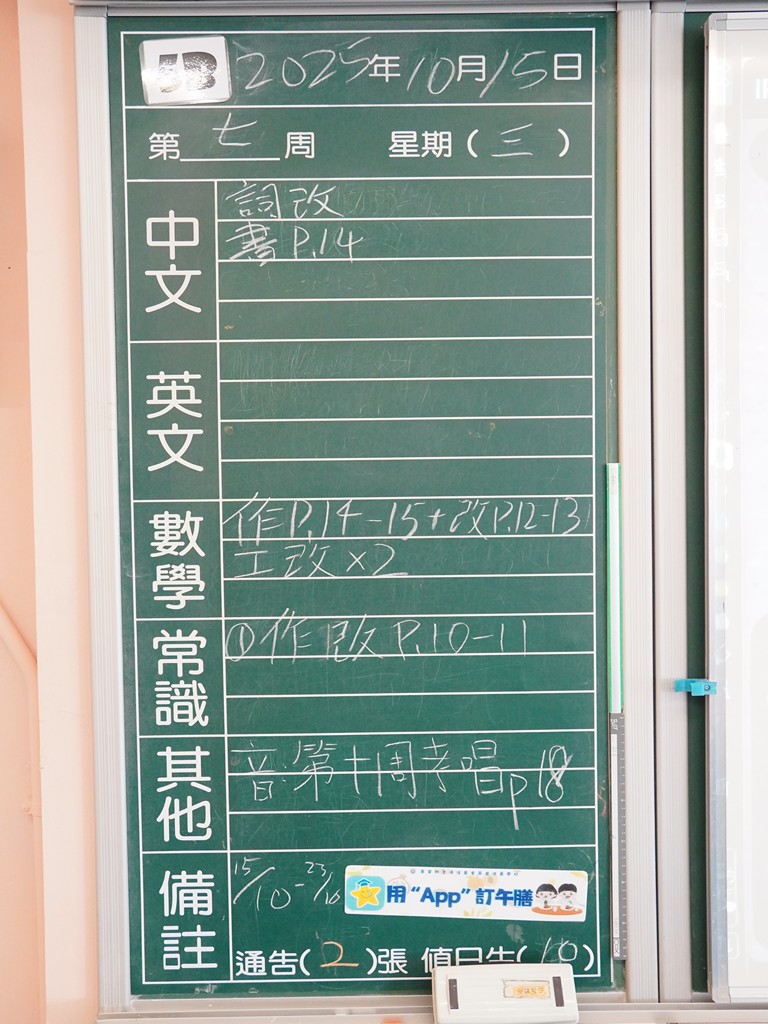 5B 2025年10月15日
第七周 星期(三)
中文
詞改
書P.14
英文
數學
作P.14-15+改P.12-13
工改×2
常識
①作改P.10-11
其他
音:第十周考唱p18
備註
15/10-23/10
用“App”訂午膳
通告(2)張 值日生(10)